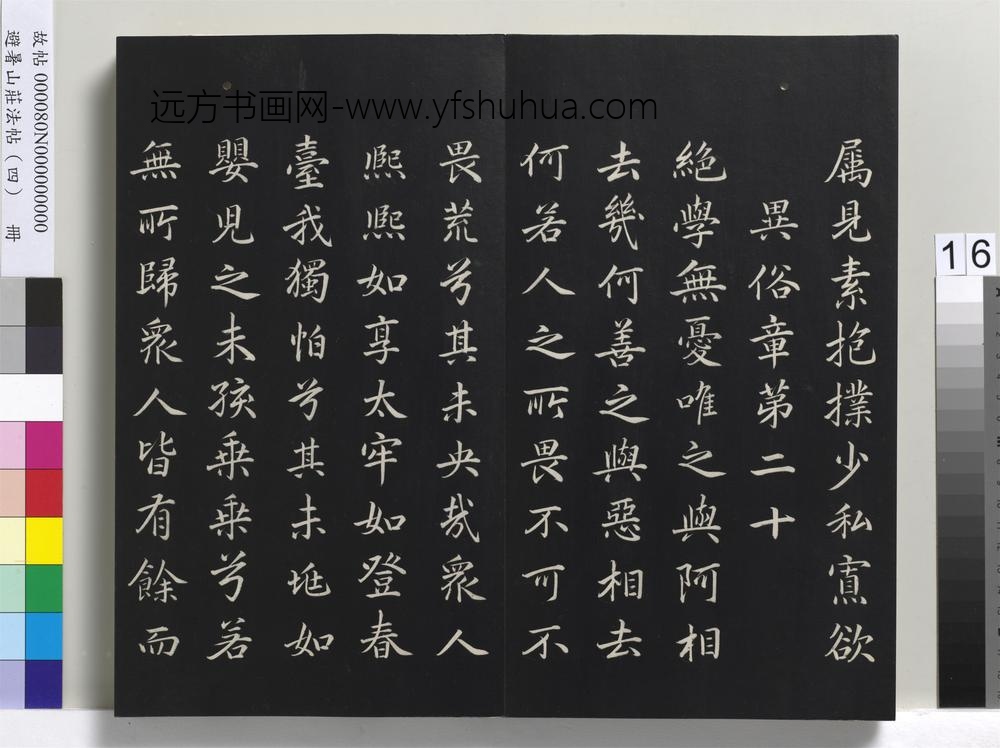 远方书画网-www.yfshuhua.com
属見素抱撲少私寡欲
異俗章苐二十
絕學無憂唯之與阿相
去幾何善之與惡相去
何若人之所畏不可不
畏荒兮其未央哉眾人
熙熙如享太牢如登春
臺我獨怕兮其未垗如
嬰兒之未孩乘乘兮若
無所歸眾人皆有餘而
故帖 000080N000000000
避暑山莊法帖（四） 冊
16